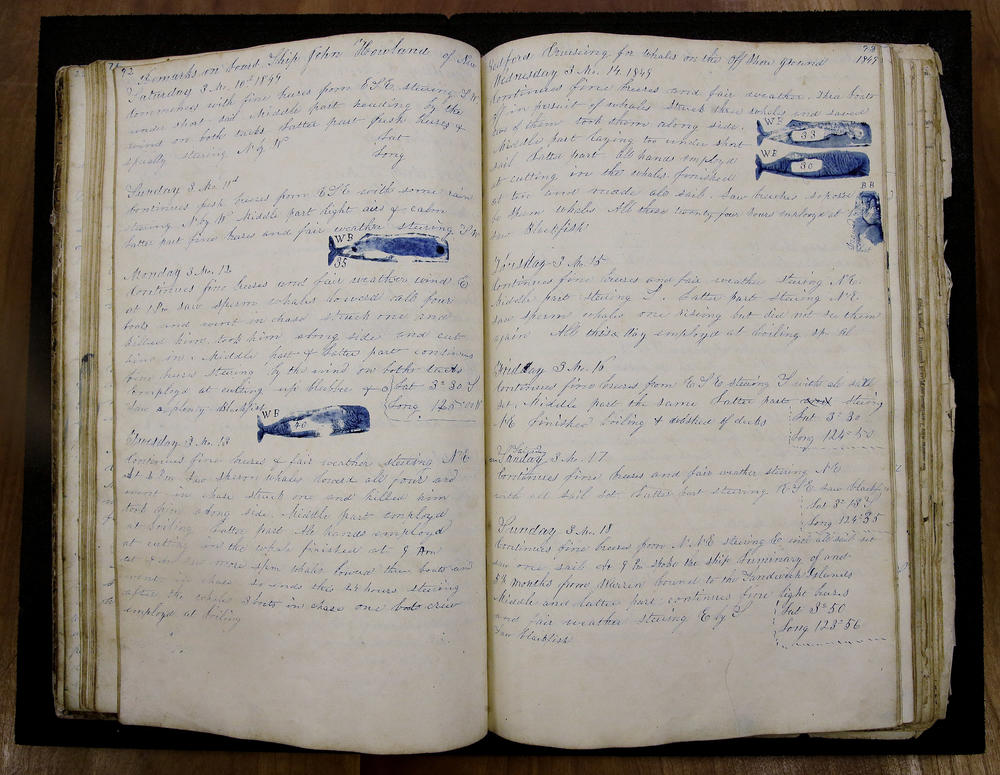 72
Remarks on board Ship John Howland of New
Saturday 3 Mo. 10th 1849
Commences with fine breses from ESE steering S W
under short sail Middle part heading by the
wind on both tacks Latter part fresh breses &
squally steering N by W Lat
Long
Sunday 3 Mo. 11th
Continues fresh breses from ESE with some rain
steering N by W Middle part light airs & calm
Latter part fine breses and fair weather steering S W
WB
35
Monday 3 Mo. 12
Continues fine breses and fair weather wind E
at 1 PM saw sperm whales lowered all four
boats and went in chase struck one and
killed him took him along side and cut
him in. Middle part & Latter part continues
fine breses steering by the wind on both tacks
employd at cutting up blubber & Lat 3° 30 S
Saw a plenty Blackfish Long 125° 00 W
WB
40
Tuesday 3 Mo. 13
Continues fine breses & fair weather steering N E
at PM saw sperm whales lowerd all four and
went in chase struck one and killed him
took him along side. Middle part employd
at boiling Latter part All hands employd
at cutting in the whale finished at 9 Am
saw more spm whales lowerd three boats and
went in chase so ends this 24 hours steering
after the whales 3 boats in chase one boats crew
employd at boiling
73
Bedford Cruising for whales on the Off Shore ground 1849
Wednesday 3 Mo. 14. 1849
Continues fine breses and fair weather. Three boats
off in pursuit of whales struck three whales and saved
two of them took them along side.
WB
33
Middle part laying too under short
sail Latter part All hands employd
WB
30
at cutting in the whales finnished
at ten and made all sail. Saw breaches suposed
BB
to be them whales All these twenty four hours employd at
saw Blackfish
Thirsday 3 Mo. 15
Continues fine breses and fair weather steering N E.
Middle part steering S Latter part steering N E
saw sperm whales one riseing but did not see them
again All this day employd at boiling sp oil
Friday 3 Mo. 16
Continues fine breses from ESE steering S with all sail
set. Middle part the same Latter part steering
N E Finished boiling & washed of decks Lat 3° 30
Long 124° 50
Sunday 3 Mo. 17
Continues fine breses and fair weather steering N E
with all sail set Latter part steering ESE saw blackfish
Lat 3° 18 S
Long 124° 35
Sunday 3 Mo. 18
Continues fine breses from N. N E steering E with all sail set
saw one sail At 9 PM spoke the ship Luminary of and
months from Warren bound to the Sandwich Islands
Middle and Latter part continues fine light breses
and fair weather steering E by S Lat 3° 50
saw blackfish Long 123° 56